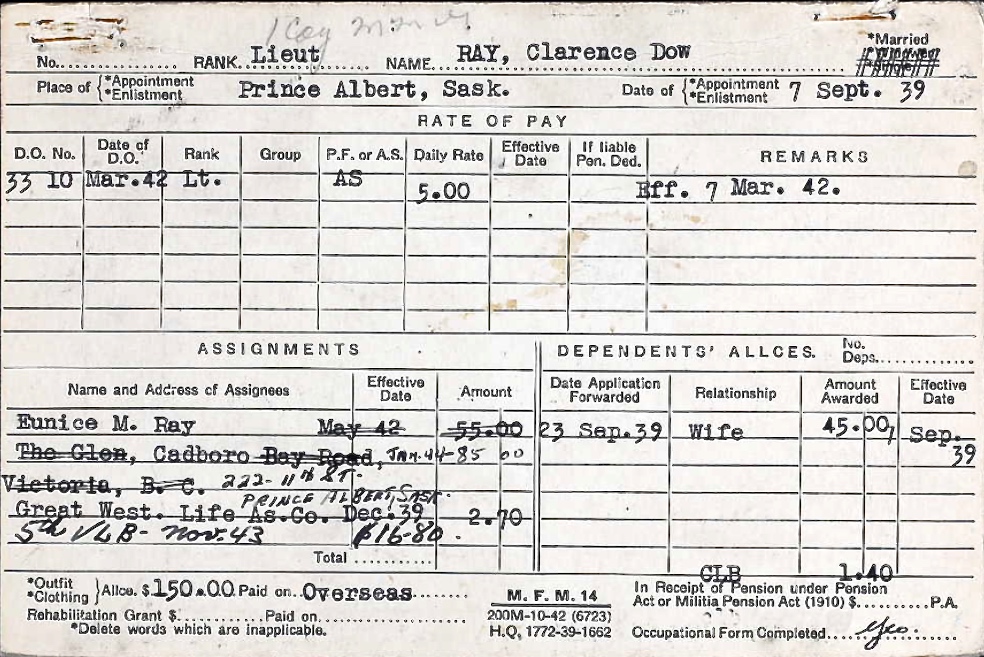 No. RANK Lieut NAME RAY, Clarence Dow *Married
Place of { *Appointment *Enlistment Prince Albert, Sask. Date of { *Appointment *Enlistment 7 Sept. 39
RATE OF PAY
D.O. No. Date of D.O. Rank Group P.F. or A.S. Daily Rate Effective Date If liable Pen. Ded. REMARKS
33 10 Mar.42 Lt. AS 5.00 Eff. 7 Mar. 42.
ASSIGNMENTS DEPENDENTS' ALLCES. No. Deps.
Name and Address of Assignees Effective Date Amount Date Application Forwarded Relationship Amount Awarded Effective Date
Eunice M. Ray May 42 55.00 23 Sep.39 Wife 45.00 Sep. 39
The Glen, Cadboro Bay Road, JAN.44-85 00
Victoria, B. C. 222-11th ST.
PRINCE ALBERT, SASK.
Great West. Life As.Co. Dec.39 2.70
5th VLB - Nov. 43 $16-80.
Total
CLB 1.40
*Outfit *Clothing } Allce. $150.00 Paid on Overseas M. F. M. 14 In Receipt of Pension under Pension
Act or Militia Pension Act (1910) $ P.A.
Rehabilitation Grant $ Paid on 200M-10-42 (6723)
*Delete words which are inapplicable. H.Q. 1772-39-1662 Occupational Form Completed Yes.